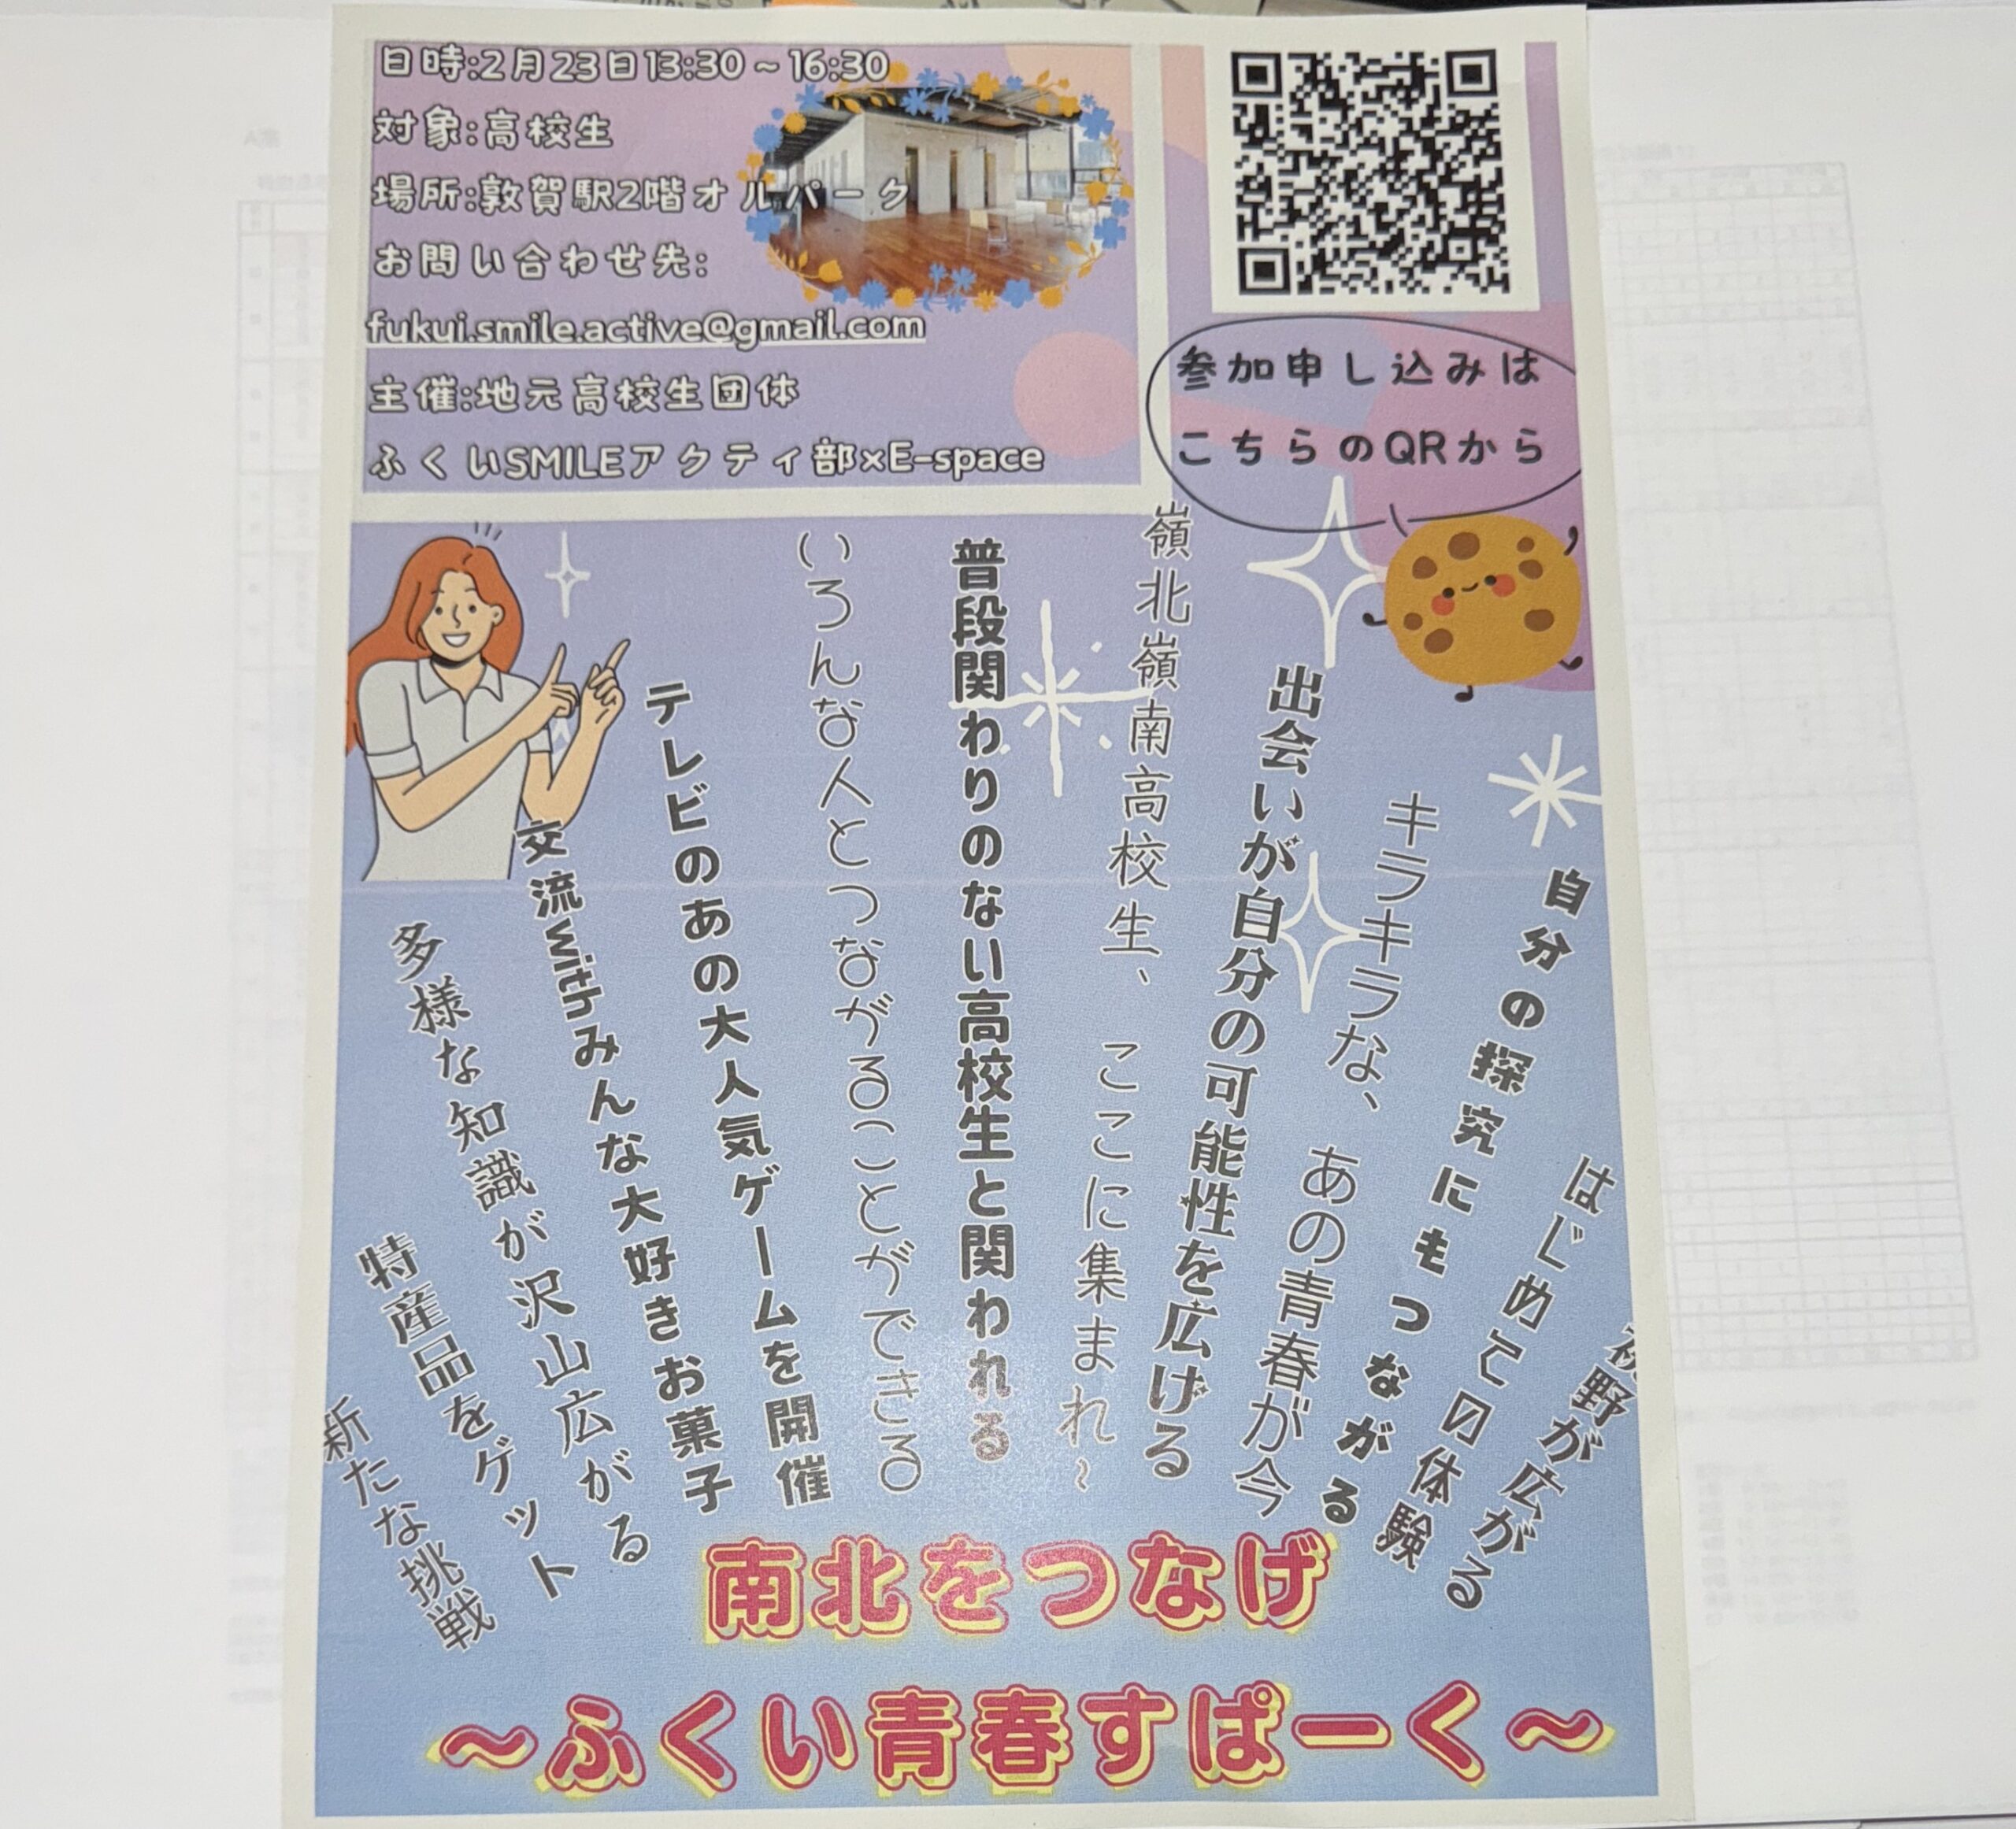 日時:2月23日13:30~16:30
対象:高校生
場所:敦賀駅2階オルパーク
お問い合わせ先:
fukui.smile.active@gmail.com
主催:地元高校生団体
ふくいSMILEアクティ部×E-space
参加申し込みは
こちらのQRから
野が広がる
はじめての体験
自分の探究にもつながる
キラキラな、あの青春が今
出会いが自分の可能性を広げる
嶺北嶺南高校生、ここに集まれ~
普段関わりのない高校生と関われる
いろんな人とつながることができる
テレビのあの大人気ゲームを開催
交流withみんな大好きお菓子
多様な知識が沢山広がる
特産品をゲット
新たな挑戦
南北をつなげ
~ふくい青春すぱーく~